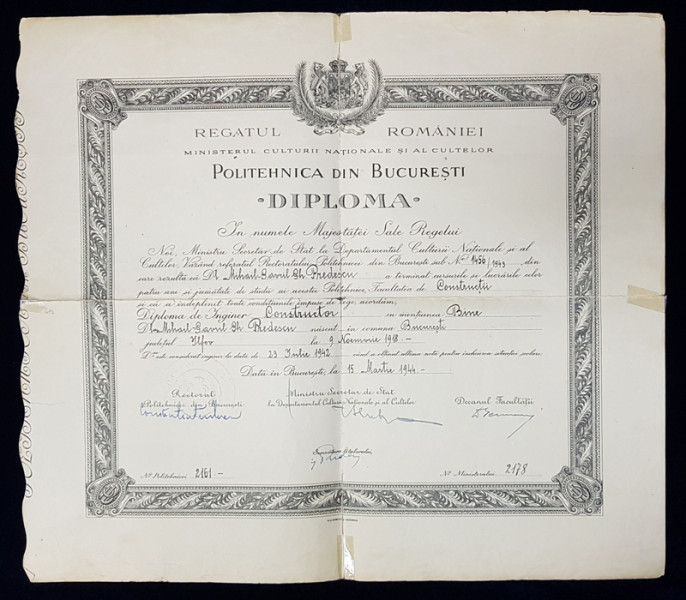 REGATUL ROMÂNIEI
MINISTERUL CULTURII NAȚIONALE ȘI AL CULTELOR
POLITEHNICA DIN BUCUREȘTI
DIPLOMA
În numele Majestăței Sale Regelui
Noi, Ministru Secretar de Stat la Departamentul Culturii Naționale și al
Cultelor, Văzând referatul Rectoratului Politehnicei din București sub No. 1456/1943 din
care rezultă că Dl. Mihail-Gavril Gh. Predescu a terminat cursurile și lucrările celor
patru ani și jumătate de studii ai acestei Politehnice, Facultatea de Construcții
și că a îndeplinit toate condițiunile impuse de lege, acordăm,
Diploma de Inginer Constructor cu mențiunea Bine
Dl. Mihail-Gavril Gh. Predescu născut în comuna București
județul Ilfov la 9 Noemvrie 1918 -
D-sa este considerat inginer la data de 23 Iulie 1942 când a obținut ultima notă pentru încheierea situației școlare.
Dată în București, la 15 Martie 1944 -
Rectorul Ministru Secretar de Stat Decanul Facultății
Politehnicei din București la Departamentul Culturii Naționale și al Cultelor
Semnătura titularului,
No. Politehnicei 2161 - No. Ministerului 2178